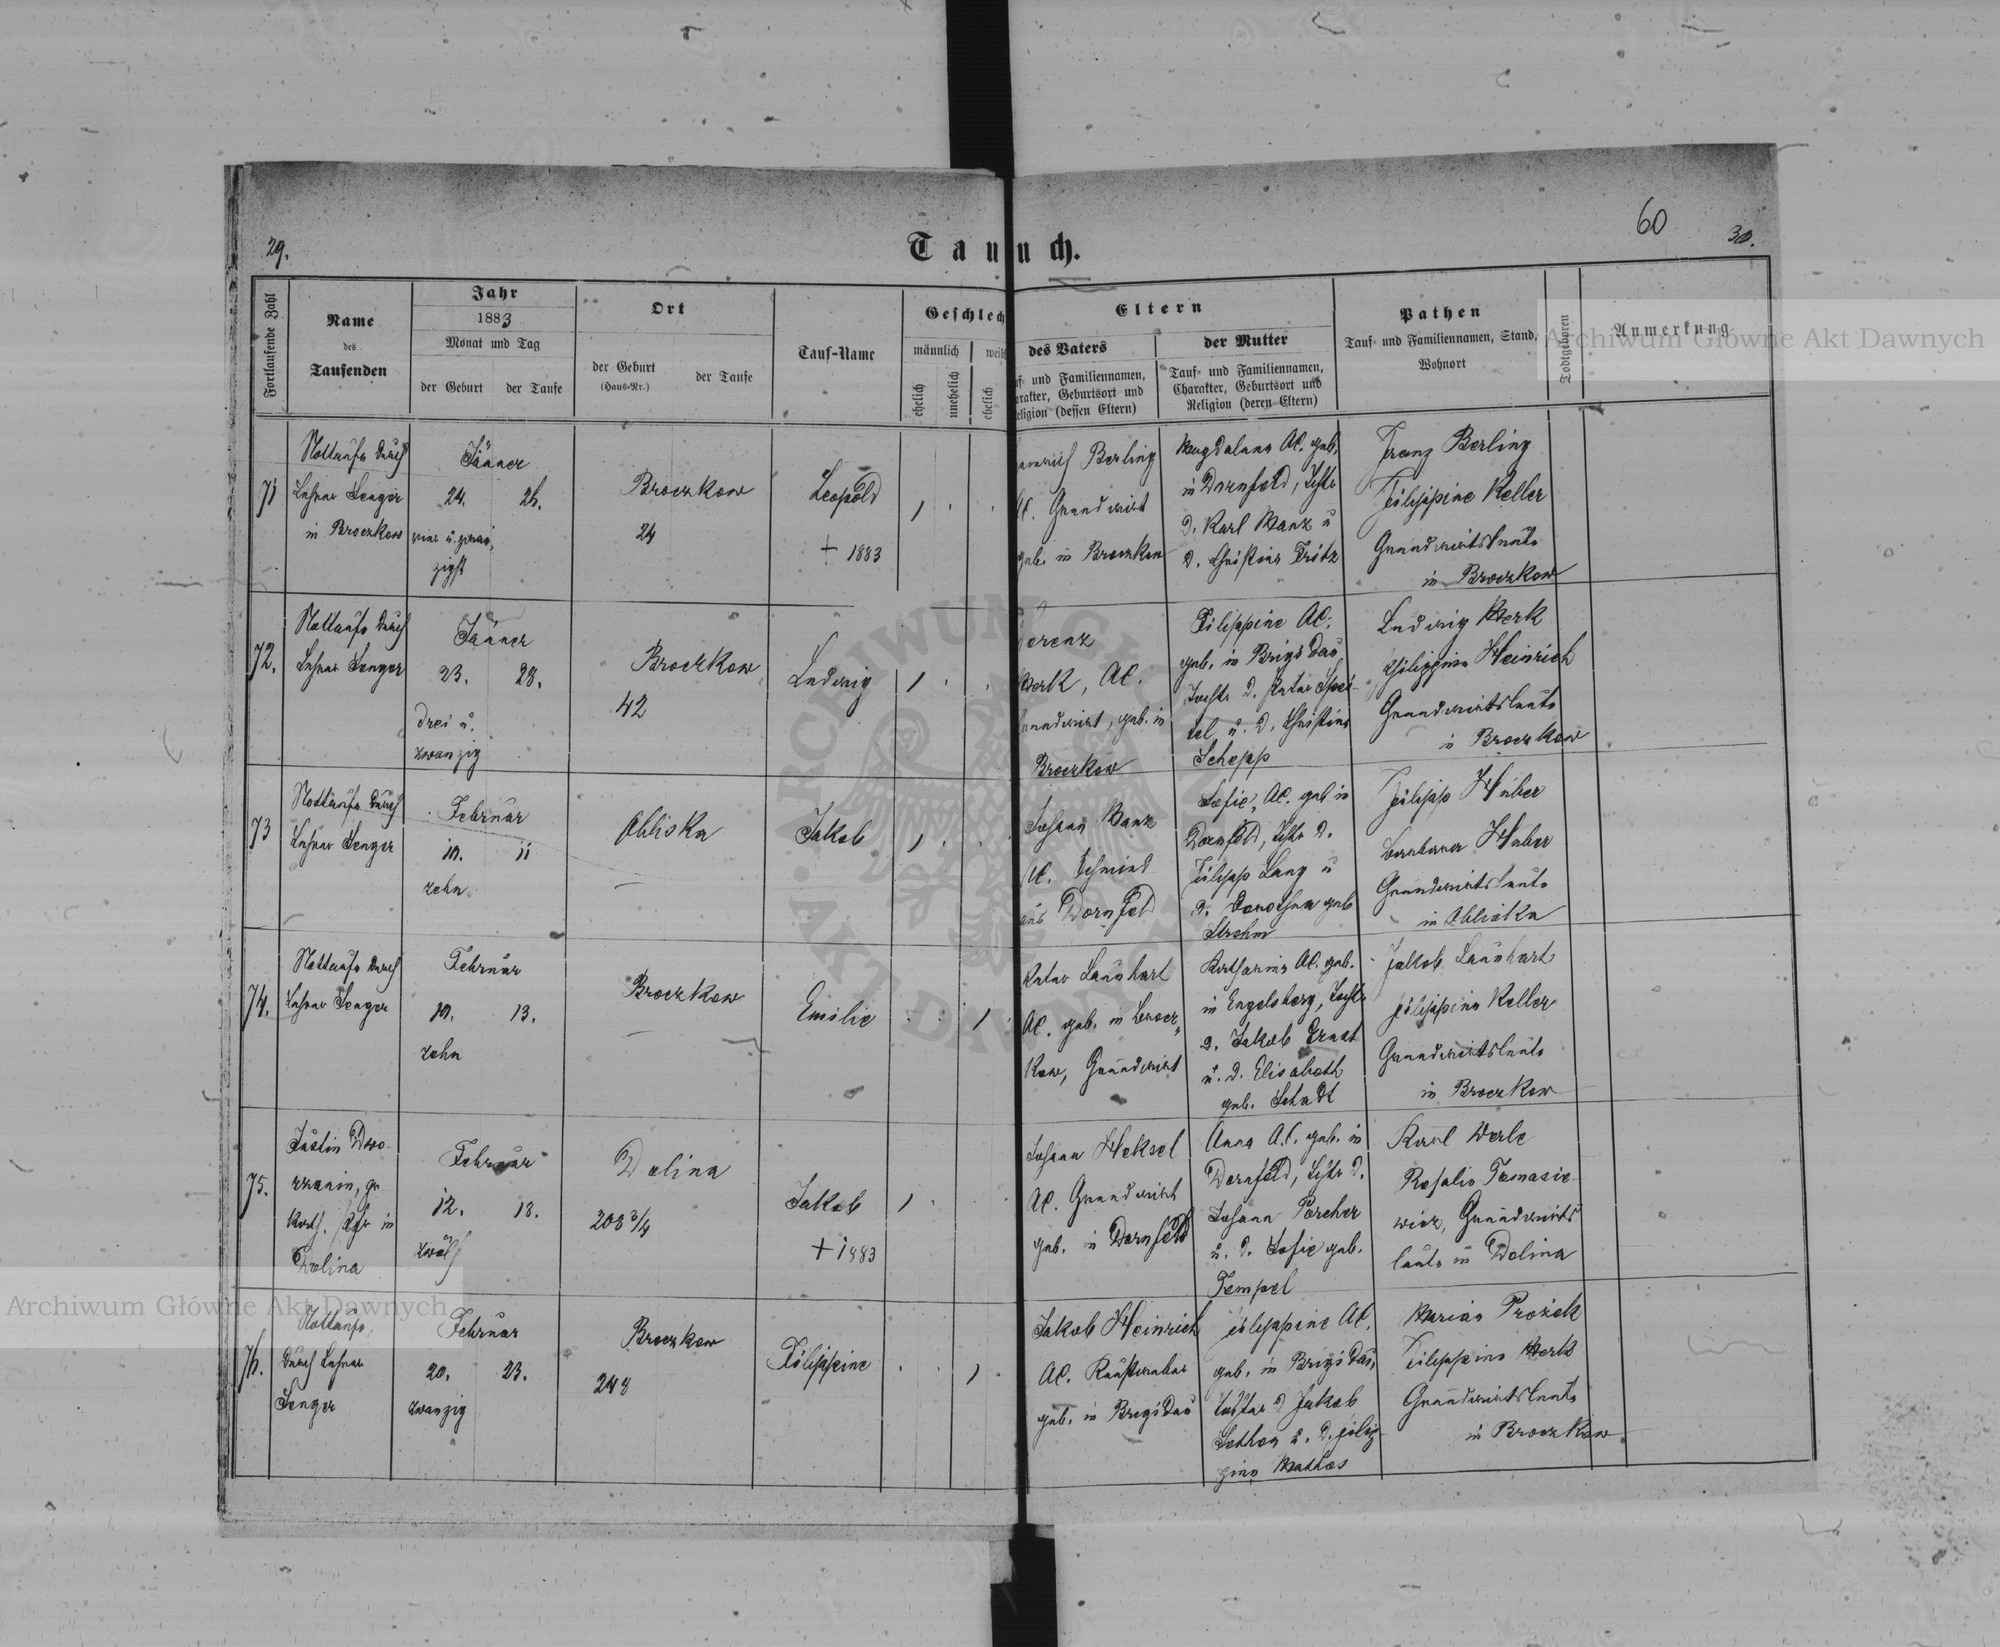 29.
60
30.
Tau
uch.
Fortlaufende Zahl
Name
des
Taufenden
Jahr
1883
Monat und Tag
der Geburt
der Taufe
Ort
der Geburt
(Haus-Nr.)
der Taufe
Tauf-Name
Geschlech
männlich
weib
ehelich
unehelich
ehelich
Eltern
des Vaters
uf- und Familiennamen,
arakter, Geburtsort und
eligion (dessen Eltern)
der Mutter
Tauf- und Familiennamen,
Charakter, Geburtsort und
Religion (deren Eltern)
Pathen
Tauf- und Familiennamen, Stand,
Wohnort
Todtgeboren
Anmerkung
71
Nottaufe durch
Lehrer Senger
in Broczkow
Jänner
24. 26.
vier u. zwan
zigst
Broczkow
24
Leopold
+ 1883
Berling
AC. Grundwirt
geb. in Broczkow
Magdalena AC. geb.
in Dornfeld, Tchtr
d. Karl Manz u
d. Christine Fritz
Franz Berling
Filippine Keller
Grundwirtsleute
in Broczkow
72.
Nottaufe durch
Lehrer Senger
Jänner
23. 28.
drei u.
zwanzig
Broczkow
42
Ludwig
Lorenz
Merk, AC.
Grundwirt, geb. in
Broczkow
Filippine AC.
geb. in Brigidau
Tochtr d. Peter Spei-
tel u. d. Christine
Schepp
Ludwig Merk
Philippine Heinrich
Grundwirtsleute
in Broczkow
73
Nottaufe durch
Lehrer Senger
Februar
10. 11
zehn
Obliska
—
Jakob
Johann Manz
AC. Schmied
aus Dornfeld
Sofie, AC. geb in
Dornfeld, Tchtr d.
Filipp Lang u
d. Dorothea geb
Strohm
Filipp Huber
Barbara Huber
Grundwirtsleute
in Obliska
74.
Nottaufe durch
Lehrer Senger
Februar
10. 13.
zehn
Broczkow
—
Emilie
Peter Launhart
AC. geb. in Brocz„
kow, Grundwirt
Katharina AC. geb.
in Engelsberg, Tochtr
d. Jakob Ernst
u. d. Elisabeth
geb. Schadt
Jakob Launhart
Filippine Keller
Grundwirtsleute
in Broczkow
75.
Justin Dwo-
rzanin, gr
kath. Pfr in
Dolina
Februar
12. 18.
zwölf
Dolina
208 3/4
Jakob
+ 1883
Johann Heksel
AC. Grundwirt
geb. in Dornfeld
Anna A.C. geb. in
Dornfeld, Tchtr d.
Johann Porcher
u. d. Sofie geb.
Tempel
Karl Werle
Rosalie Tomasie-
wicz, Grundwirts
leute in Dolina
76.
Nottaufe
durch Lehrer
Senger
Februar
20. 23.
zwanzig
Broczkow
248
Filippine
Jakob Heinrich
AC.
geb. in Brigidau
Filippine AC.
geb. in Brigidau,
Tochter d Jakob
u. d. Filip-
pine Mathes
Marian Prożek
Filippine Merk
Grundwirtsleute
in Broczkow
Archiwum Główne Akt Dawnych
Archiwum Główne Akt Dawnych